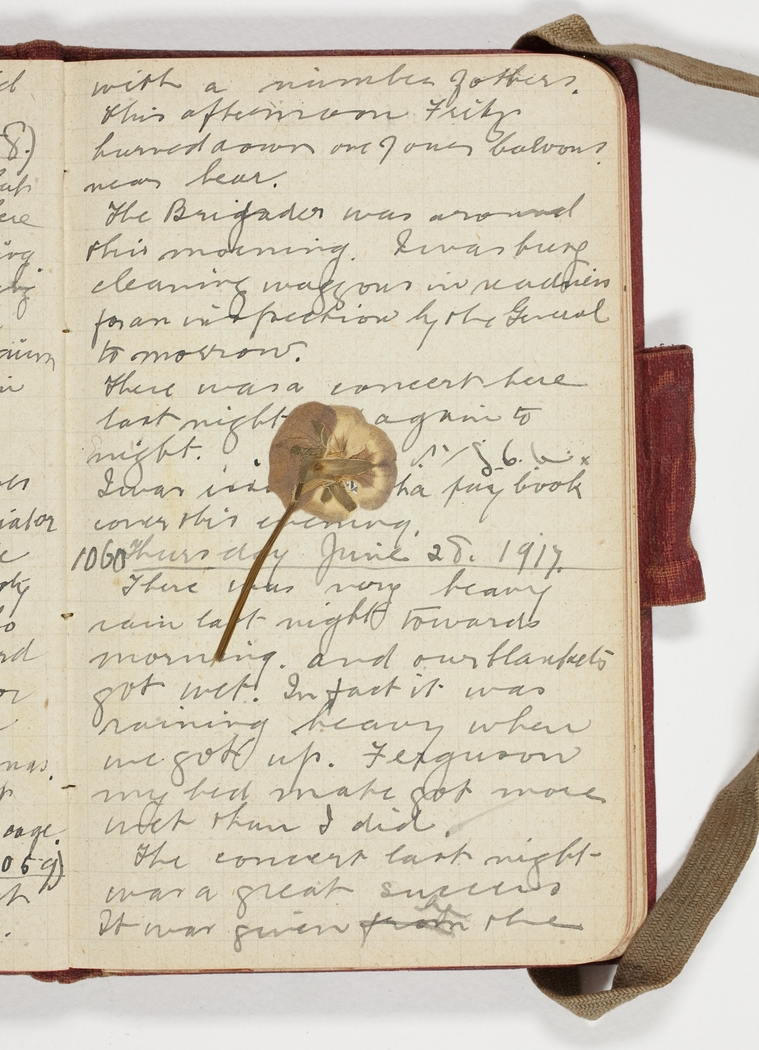 with a number of others.
This afternoon Fritz
burned down one of our baloons
near hear.
The Brigader was around
this morning. I was busy
cleaning waggons in readiness
for an inspection by the General
to morrow.
There was a concert here
last night again to
night.
I was pay book
cover this evening.
1060 Thursday June 28. 1917.
There was very heavy
rain last night towards
morning. and our blankets
got wet. In fact it was
raining heavy when
we got up. Ferguson
my bed mate got more
wet than I did.
The concert last night
was a great success
It was given from by the
8.)
ere
ing
iator
ly
so
rd
or
mas.
p
page.
059)